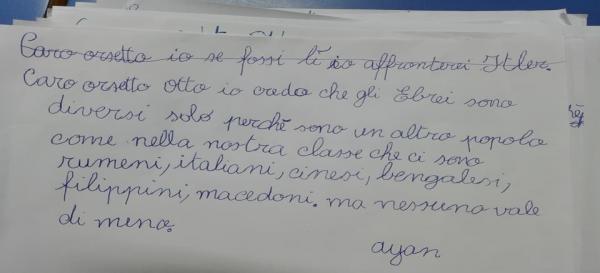 Caro orsetto io se fossi lì io affronterei Itler.
Caro orsetto Otto io credo che gli Ebrei sono
diversi solo perchè sono un altro popolo
come nella nostra classe che ci sono
rumeni, italiani, cinesi, bengalesi,
filippini, macedoni. ma nessuno vale
di meno.
ayan